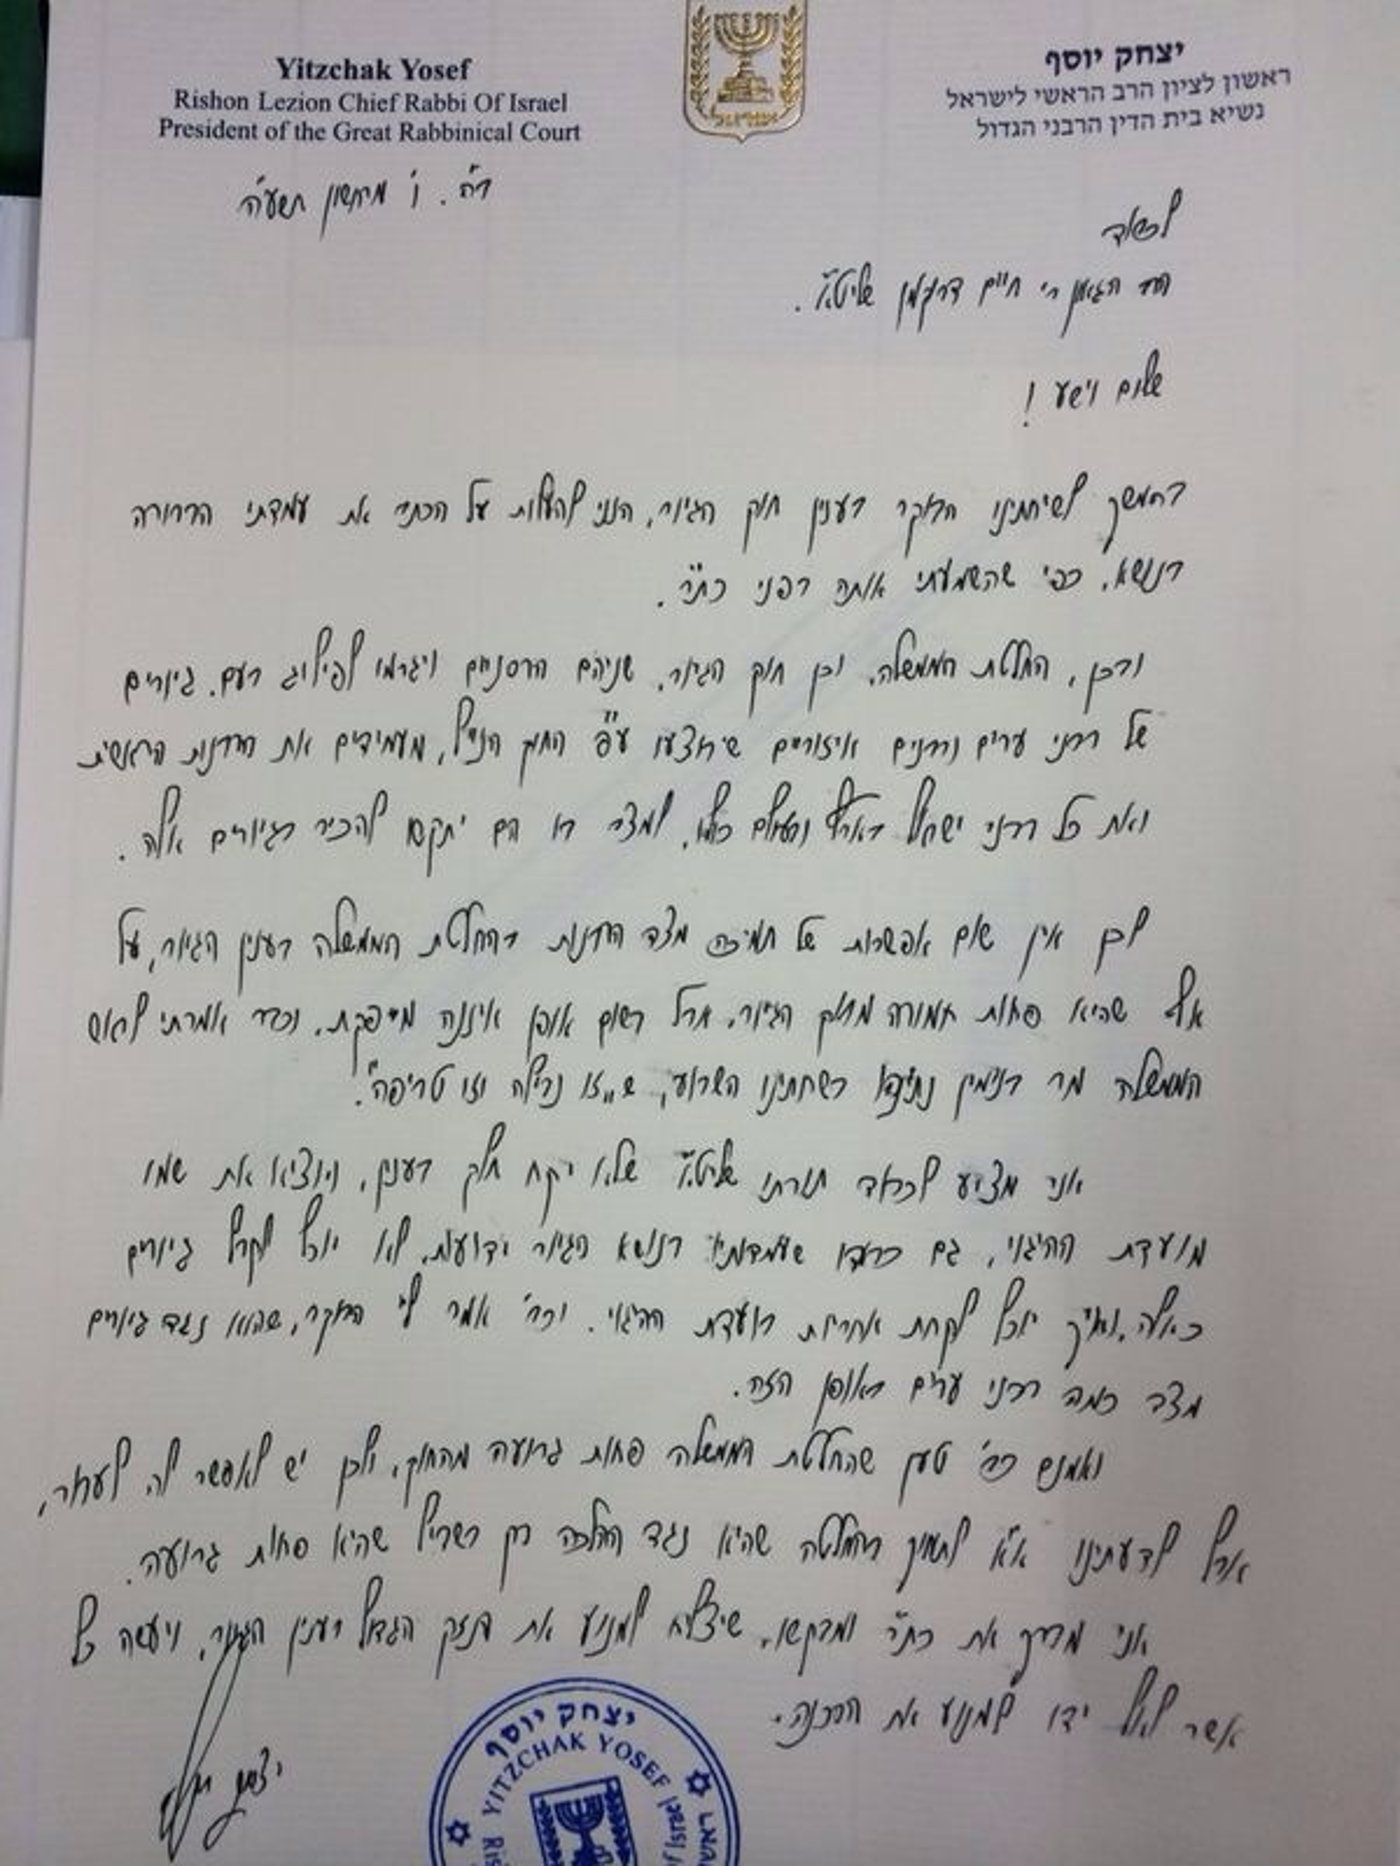 Yitzchak Yosef
Rishon Lezion Chief Rabbi Of Israel
President of the Great Rabbinical Court
יצחק יוסף
ראשון לציון הרב הראשי לישראל
נשיא בית הדין הרבני הגדול
ישראל
ב"ה. ו' מרחשון תשע"ה
לכבוד
הרב הגאון ר' חיים דרוקמן שליט"א.
שלום וישע!
בהמשך לשיחתינו הבוקר בענין חוק הגיור, הנני להעלות על הכתב את עמדתי הברורה
בנושא, כפי שהשמעתי אותה בפני כת"ר.
ובכן, החלטת הממשלה, וכן חוק הגיור, שניהם הרסניים ויגרמו לפילוג בעם. גיורים
של רבני ערים ורבנים איזוריים שיבוצעו ע"פ החוק הנ"ל, מעמידים את הרבנות הראשית
ואת כל רבני ישראל בארץ ובעולם כולו, למצב בו הם יתקשו להכיר בגיורים אלה.
לכן אין שום אפשרות של תמיכה מצד הרבנות בהחלטת הממשלה בענין הגיור, על
אף שהיא פחות חמורה מחוק הגיור, אבל בשום אופן איננה מספקת. וכבר אמרתי לראש
הממשלה מר בנימין נתניהו בשיחתינו השבוע, ש"זו נבילה וזו טריפה".
אני מציע לכבוד תורתו שליט"א שלא יקח חלק בענין, ויוציא את שמו
מועדת ההיגוי, גם כבודו שעמדותיו בנושא הגיור ידועות, לא יוכל לקבל גיורים
כאלה, ואיך יוכל לקחת אחריות בועדת ההיגוי. וכב' אמר לי הבוקר, שהוא נגד גיורים
מצד כמה רבני ערים באופן הזה.
ואמנם כב' טען שהחלטת הממשלה פחות גרועה מהחוק, ולכן יש לאפשר לה לעבור,
אבל לדעתינו א"א לתמוך בהחלטה שהיא נגד ההלכה רק בשביל שהיא פחות גרועה.
אני מברך את כת"ר ומבקשו, שיצליח למנוע את הנזק הגדול בענין הגיור, ויעשה כל
אשר לאל ידו למנוע את הרבנות.
יצחק יוסף
יצחק יוסף
YITZCHAK YOSEF